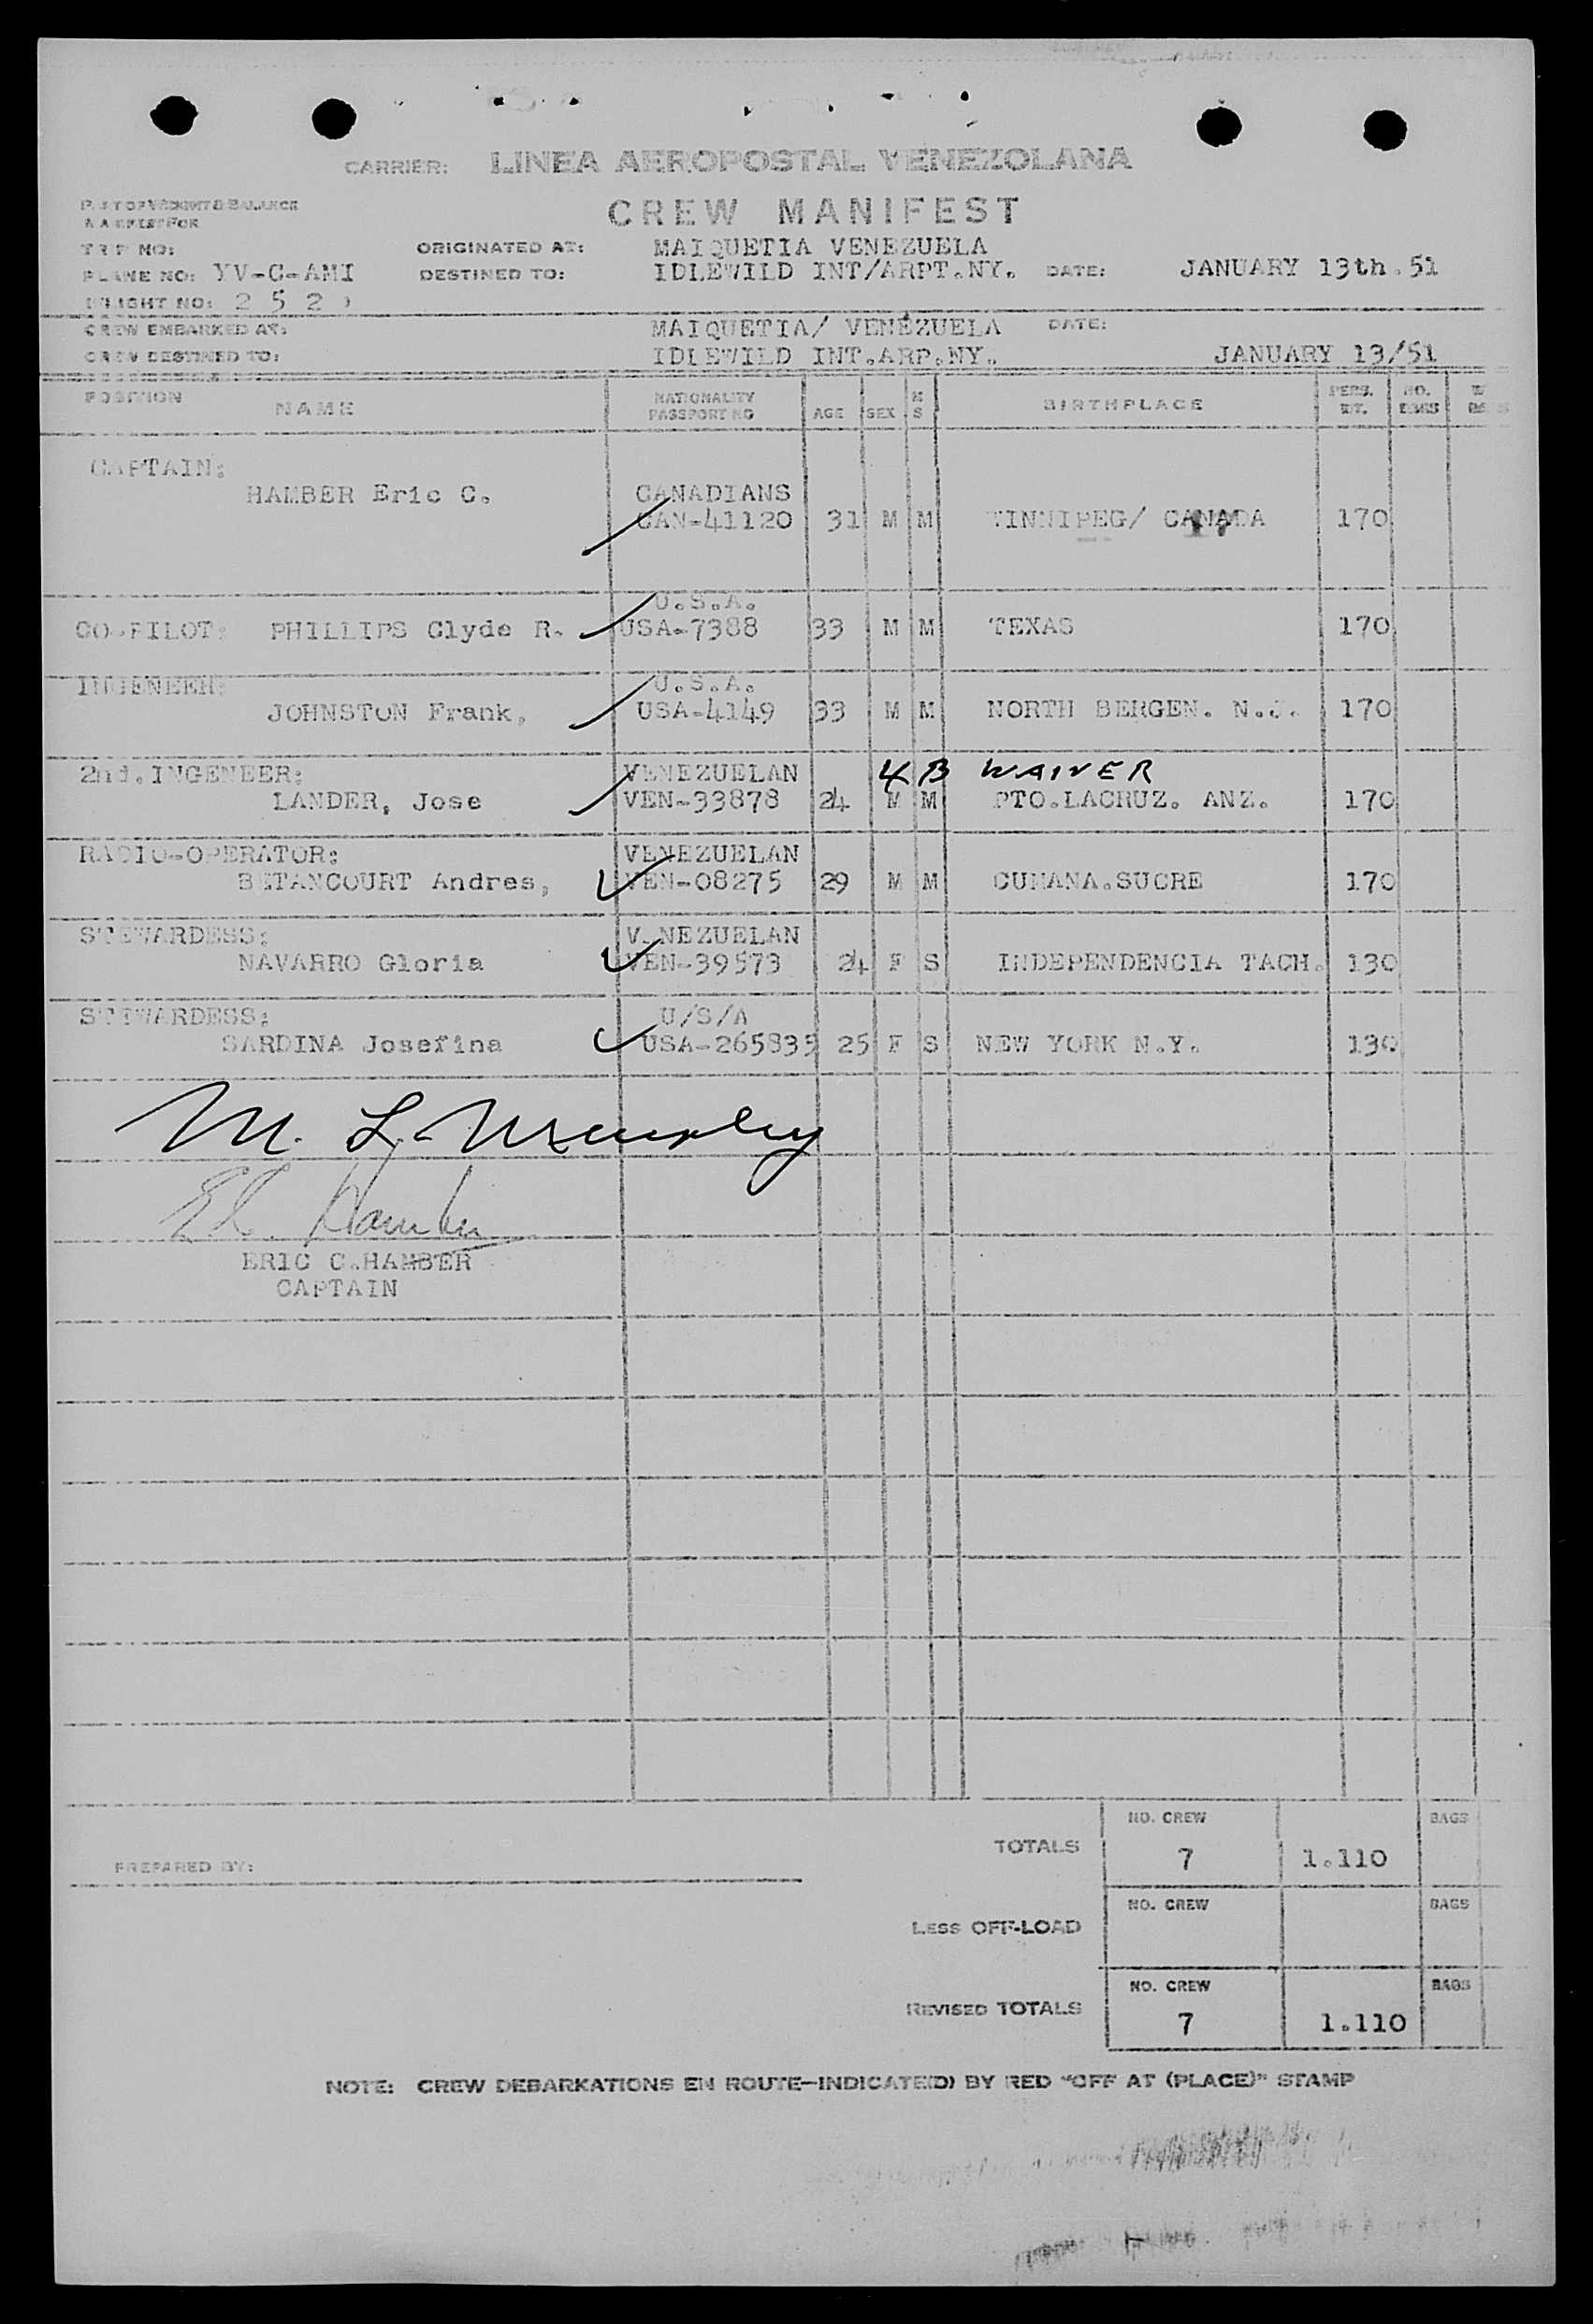 CARRIER: LINEA AEROPOSTAL VENEZOLANA
PART OF WEIGHT & BALANCE
MANIFEST FOR
CREW MANIFEST
TRIP NO:
ORIGINATED AT: MAIQUETIA VENEZUELA
PLANE NO: YV-C-AMI DESTINED TO: IDLEWILD INT/ARPT.NY. DATE: JANUARY 13th.51
FLIGHT NO: 2 5 2
CREW EMBARKED AT: MAIQUETIA/ VENEZUELA DATE:
CREW DESTINED TO: IDLEWILD INT.ARP.NY. JANUARY 13/51
POSITION NAME NATIONALITY PASSPORT NO AGE SEX M S BIRTHPLACE PERS. WT. NO. BAGS
CAPTAIN:
HAMBER Eric C. CANADIANS
CAN-41120 31 M M TINNIPEG/ CANADA 170
U.S.A.
CO-PILOT: PHILLIPS Clyde R. USA-7388 33 M M TEXAS 170
INGENEER: U.S.A.
JOHNSTON Frank, USA-4149 33 M M NORTH BERGEN. N.J. 170
2nd.INGENEER: VENEZUELAN 4 B WAIVER
LANDER, Jose VEN-33878 24 M M PTO.LACRUZ. ANZ. 170
RADIO-OPERATOR: VENEZUELAN
BETANCOURT Andres, VEN-08275 29 M M CUMANA.SUCRE 170
STEWARDESS: VENEZUELAN
NAVARRO Gloria VEN-39573 24 F S INDEPENDENCIA TACH. 130
STEWARDESS: U/S/A
SARDINA Josefina USA-265835 25 F S NEW YORK N.Y. 130
M. L.
E.C. Hamber
ERIC C.HAMBER
CAPTAIN
NO. CREW BAGS
TOTALS 7 1.110
PREPARED BY:
NO. CREW BAGS
LESS OFF-LOAD
NO. CREW BAGS
REVISED TOTALS 7 1.110
NOTE: CREW DEBARKATIONS EN ROUTE—INDICATE(D) BY RED "OFF AT (PLACE)" STAMP